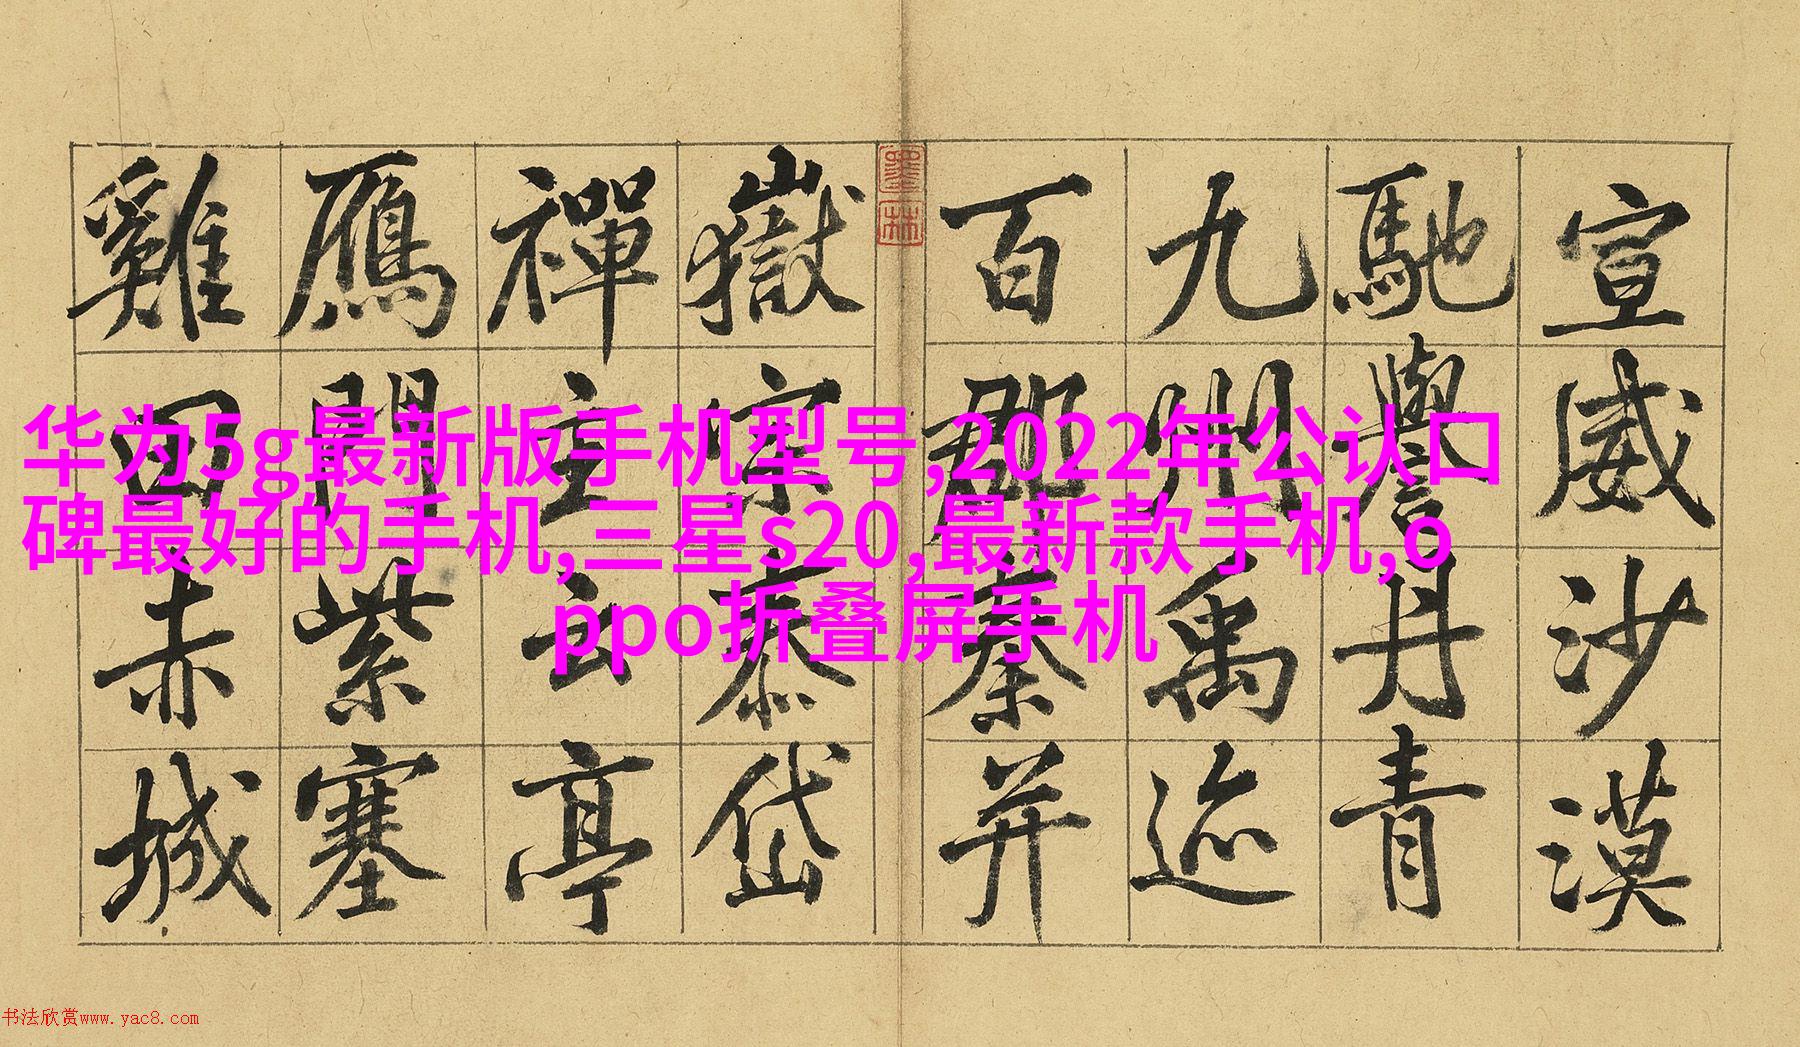 宣威沙漠
馳譽丹青
九州禹迹
百郡秦并
墨林
嶽宗泰岱
禪主云亭
鴈門紫塞
雞田赤城
华为5g最新版手机型号,2022年公认口
碑最好的手机,三星s20,最新款手机,o
ppo折叠屏手机
书法欣赏www.yac8.com